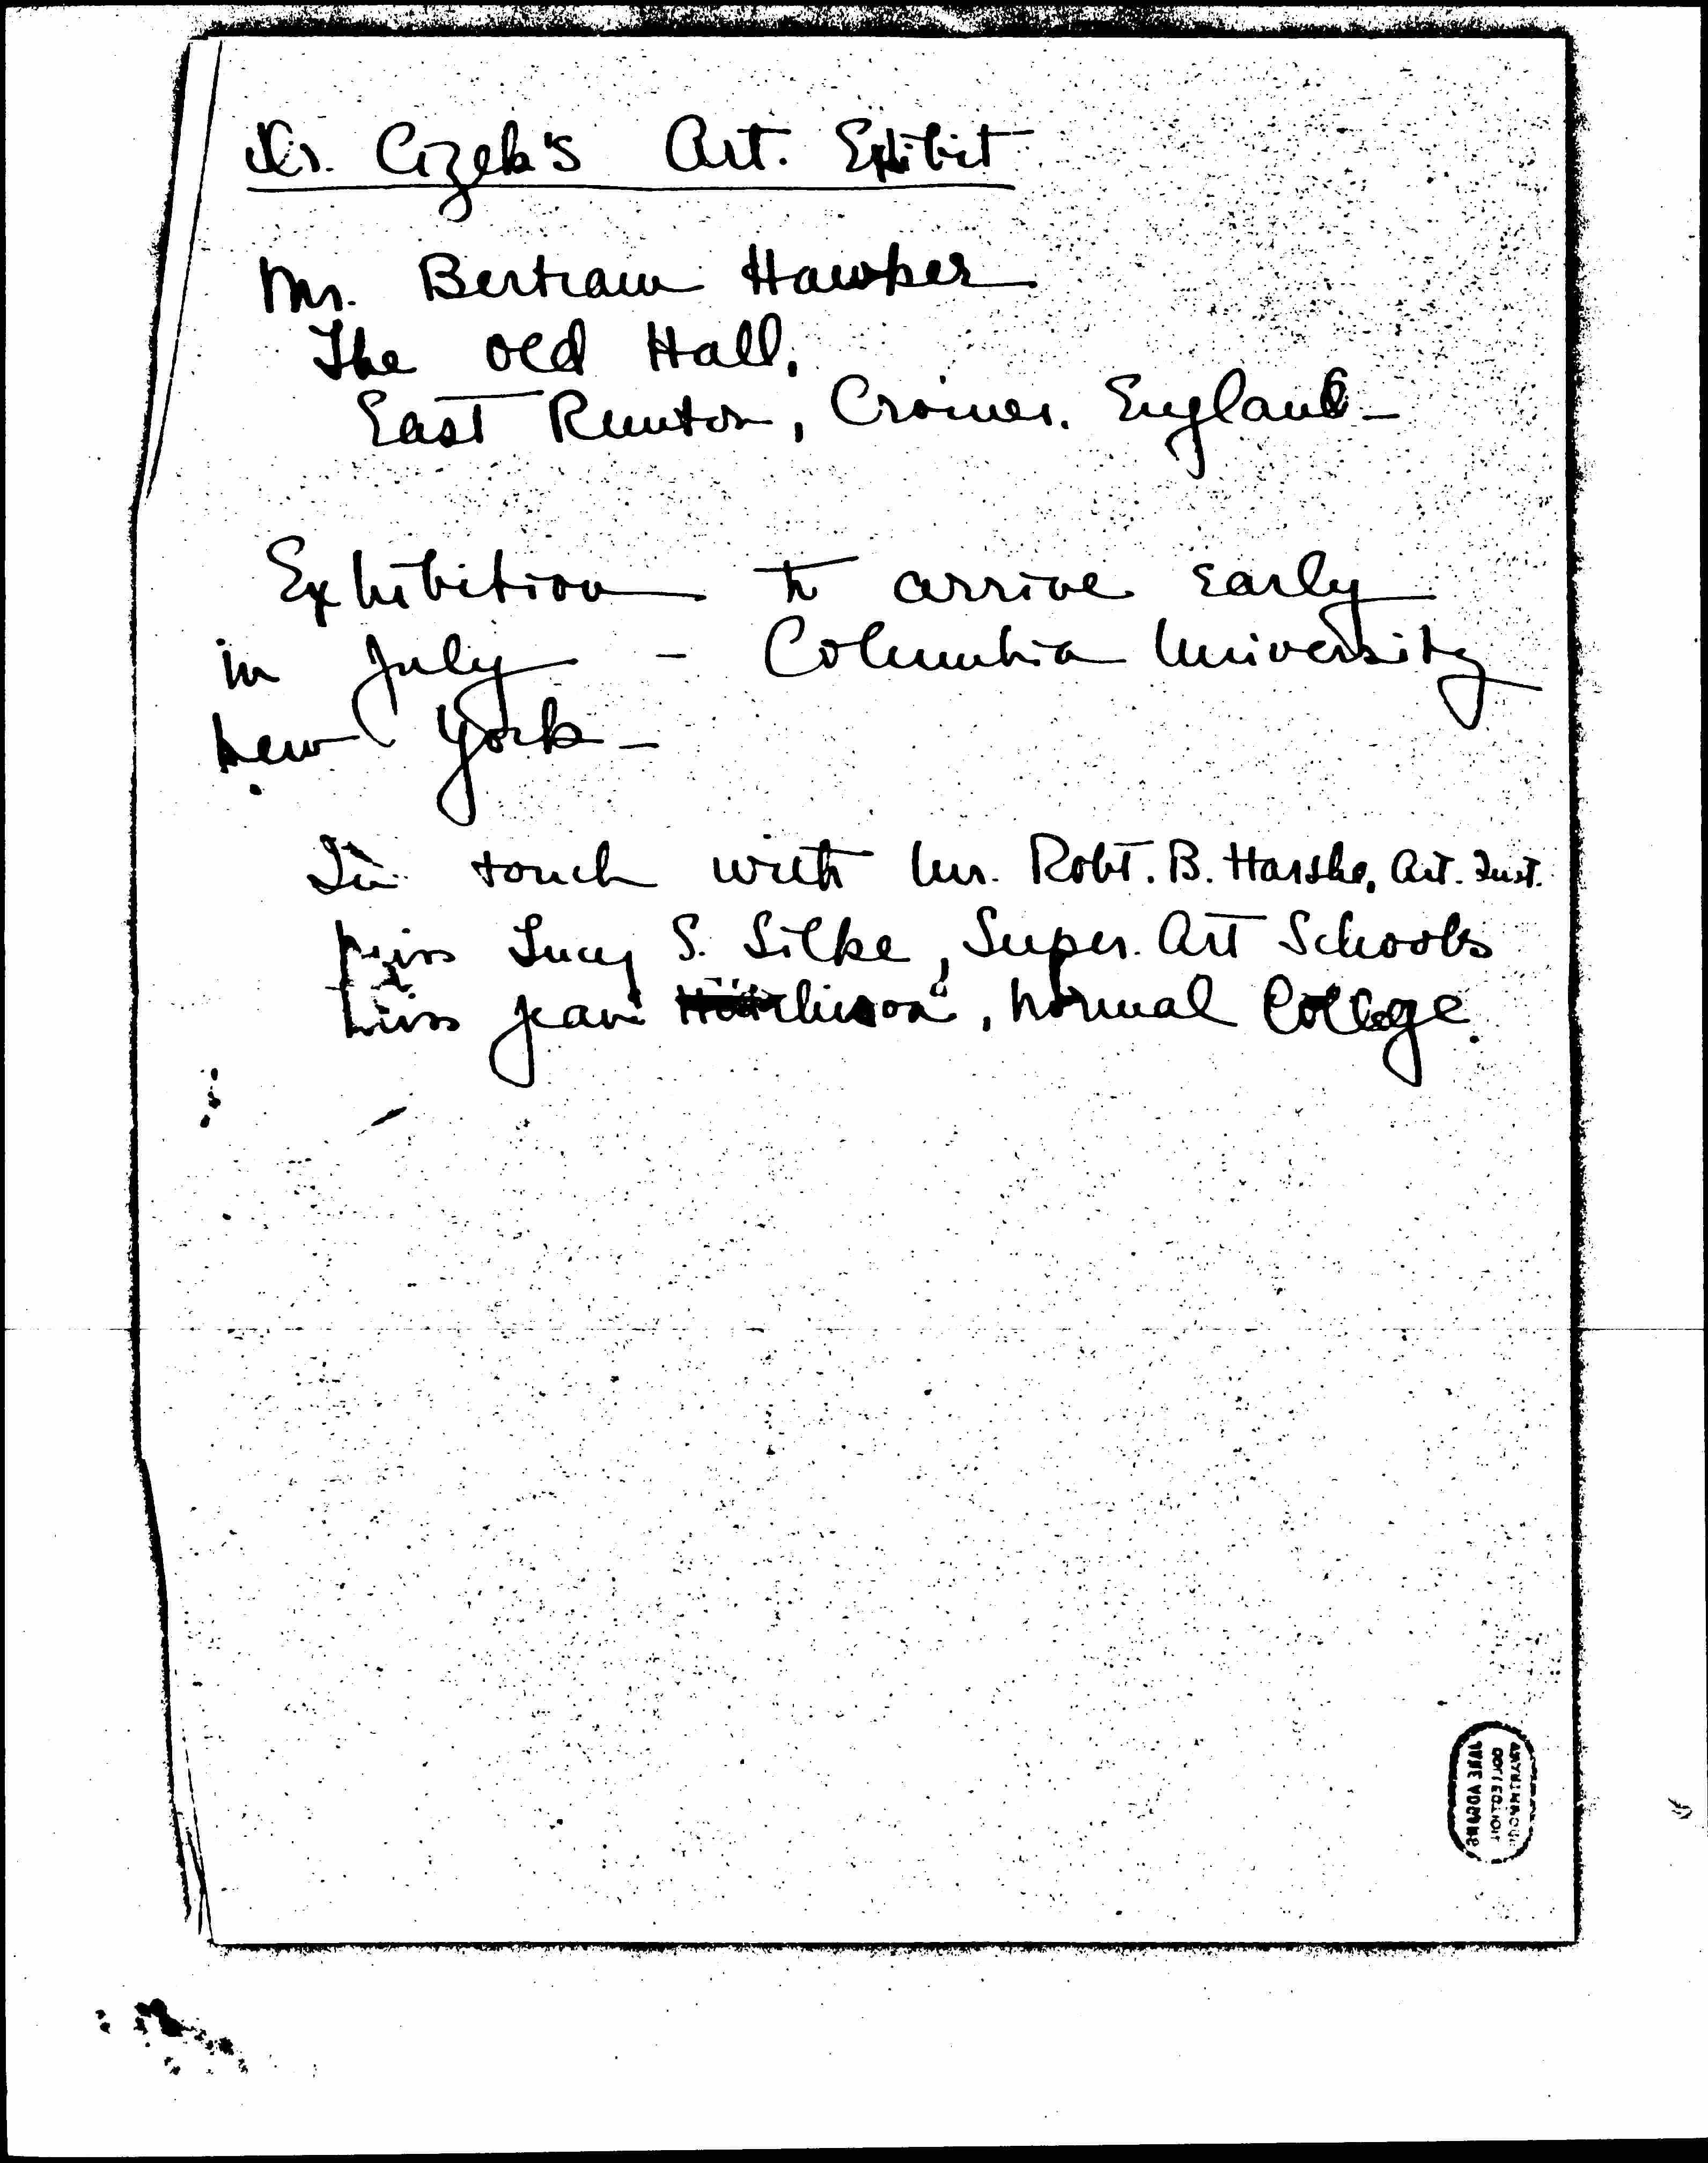 Dr. Cizek's Art. Exhibit
Mr. Bertram Hawker
The Old Hall,
East Runton, Cromer. England -
Exhibition to arrive early
in July - Columbia University
New York -
In touch with Mr. Robt. B. Harshe, Art. Inst.
Miss Lucy S. Silke, Super. Art Schools
Miss Jean Hutchison, Normal College.